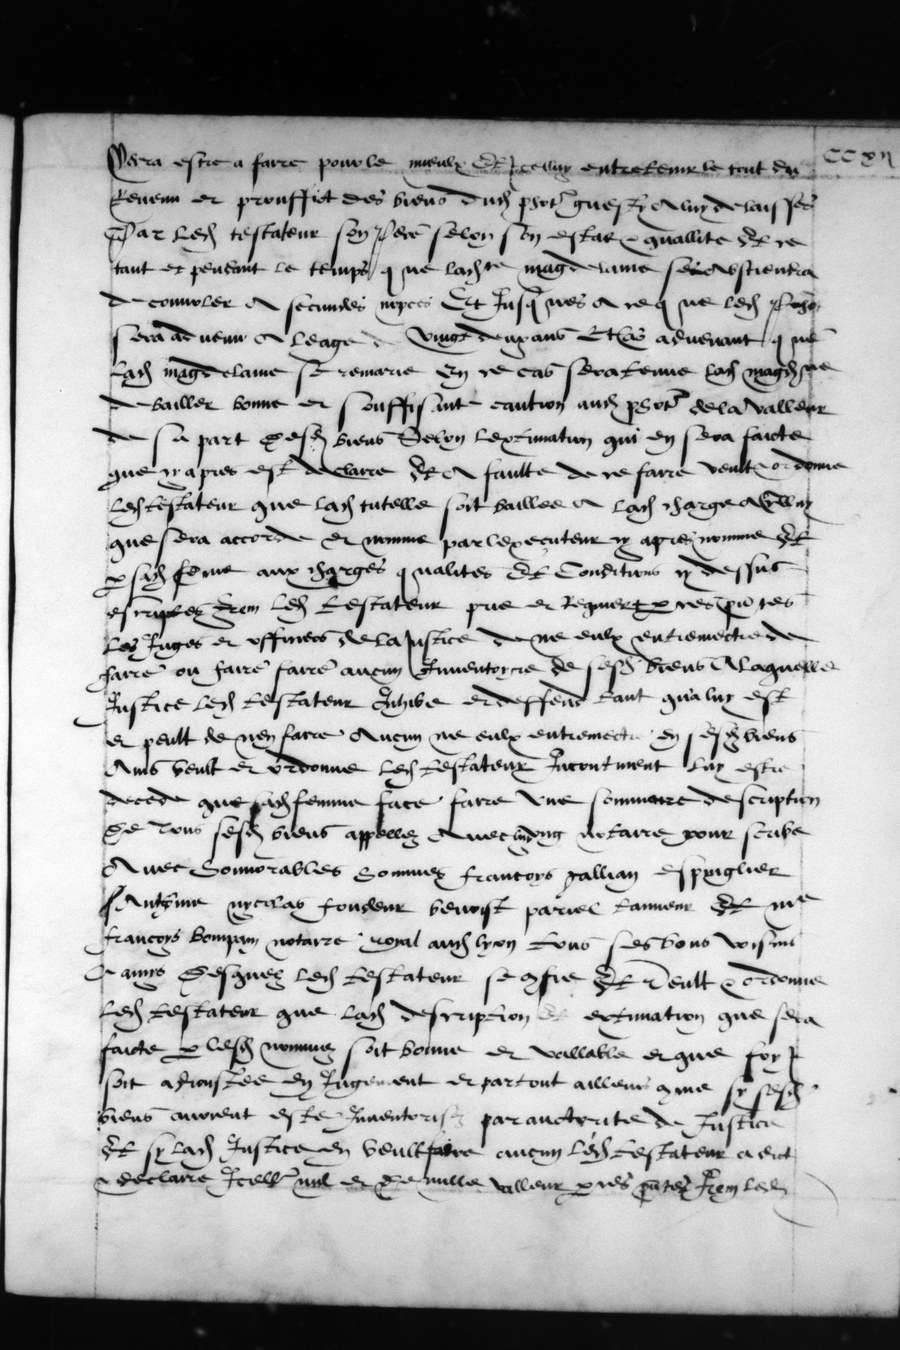 CCXII
verra estre a faire pour le mieulx Et Icelluy entretenir le tout du
Revenu et prouffict des biens dud a luy delaisses
Par led testateur son pere selon son estat & quallite Et ce
tant et pendant le temps que lad magdelaine se abstiendra
de convoler a secundes nopces Et Jusques a ce que led
sera advenu a leage de vingt deux ans Et cas advenant que
Lad magdelaine se remarie En ce cas sera tenue lad magdne
de bailler bonne et souffisante caution aud de la valleur
de sa part desd biens Selon lextimation qui en sera faicte
que cy apres est declaire Et A faulte de ce faire veult & ordonne
Led testateur que lad tutelle soit baillee a lad charge a celluy
que sera accorde et nomme par lexecuteur cy apres nomme Et
p sad feme aux charges qualites Et Conditions cy dessus
escriptes Item Led testateur prie et Requiert p ces pntes
Les Juges et officiers de la Justice de ne eulx entremectre de
faire ou faire faire aucun Inventoyre de sesd biens A laquelle
Justice led testateur Inhibe et deffend tant qua luy est
et peult de nen faire Aucun ne eulx entremectre en sesd biens
Ains veult et ordonne Led testateur Incontinent luy estre
decede que sad femme face faire une sommaire description
De tous sesd biens appelle Avec ung notaire pour scribe
Avec honnorables hommes francoys gallian espinglier
Anthoine nycolas fondeur benoist tanneur Et me
francoys notaire royal aud lyon tous ses bons voisins
& amys Desquels led testateur se confie Et Veult & ordonne
Led testateur que lad description et extimation que sera
faicte p lesd nommes soit bonne et vallable et que foy
soit adjoustee en Jugement et partout ailleurs come sy sesd
biens avoient este Inventorises par auctorite de Justice
Et sy lad Justice en veult faire aucun Led testateur a dict
& declaire Icelluy nul et de nulle valleur p ces pntes Item led